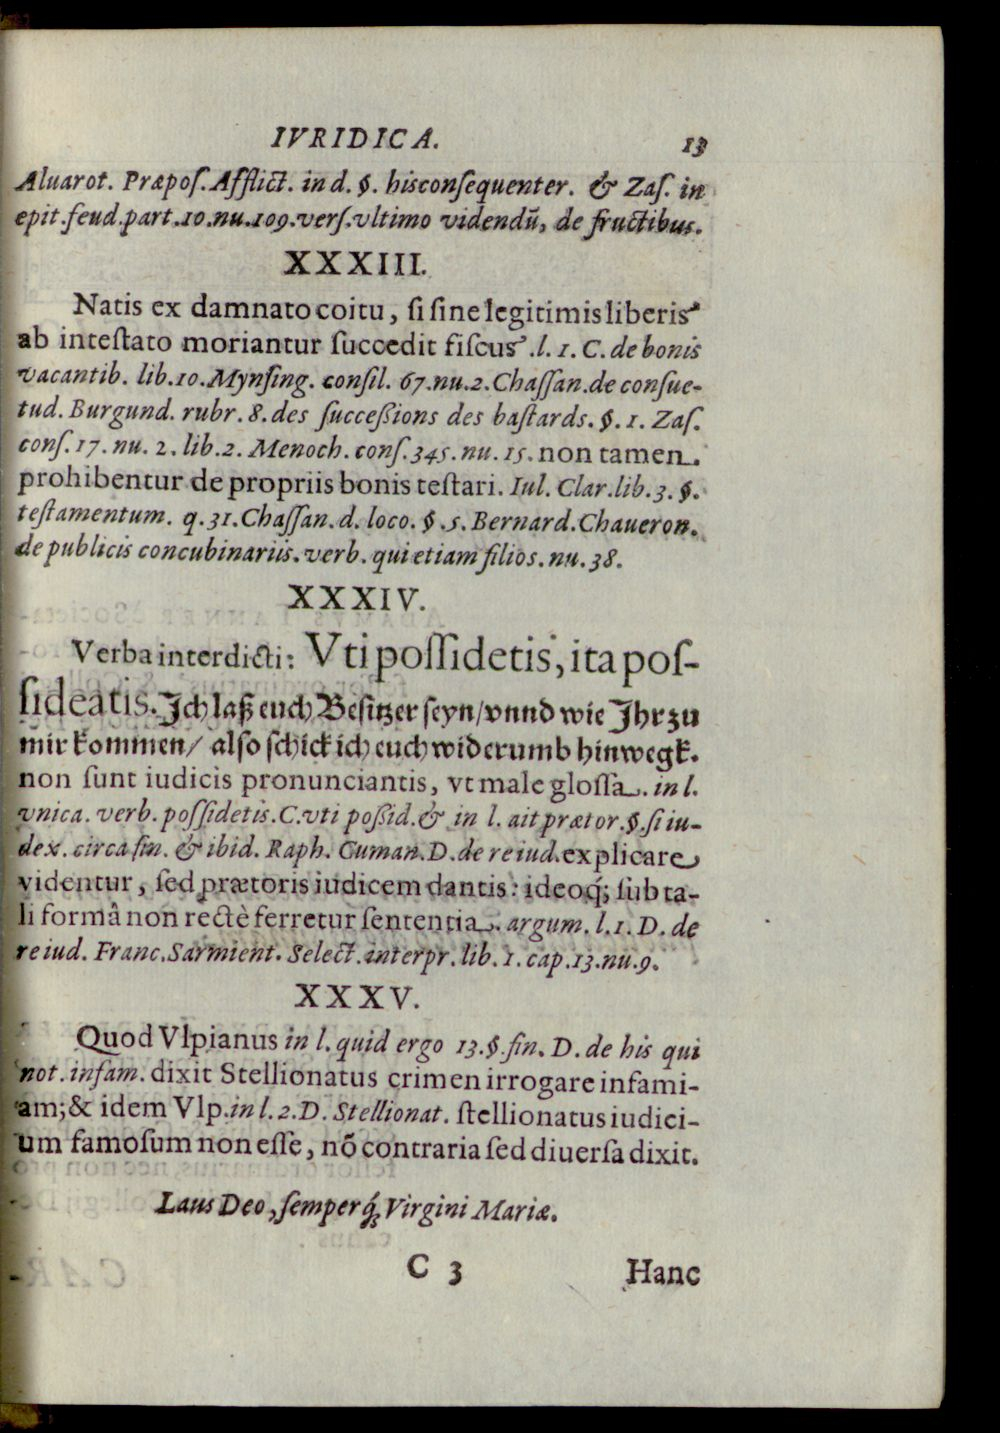 IVRIDICA. 13
Aluarot. Præpoſ. Afflict. in d. §. hisconſequenter. & Zaſ. in
epit. feud. part. 10. nu. 109. verſ. vltimo videndū, de fructibus.
XXXIII.
Natis ex damnato coitu, ſi ſine legitimis liberis
ab inteſtato moriantur ſuccedit fiſcus. l. 1. C. de bonis
vacantib. lib. 10. Mynſing. conſil. 67. nu. 2. Chaſſan. de conſue-
tud. Burgund. rubr. 8. des ſucceßions des baſtards. §. 1. Zaſ.
conſ. 17. nu. 2. lib. 2. Menoch. conſ. 345. nu. 15. non tamen
prohibentur de propriis bonis teſtari. Iul. Clar. lib. 3. §.
teſtamentum. q. 31. Chaſſan. d. loco. §. 5. Bernard. Chaueron.
de publicis concubinariis. verb. qui etiam filios. nu. 38.
XXXIV.
Verba interdicti: Vti poſſidetis, ita poſ-
ſideatis. Ich laß euch Beſitzer ſeyn/ vnnd wie Ihr zu
mir kommen/ alſo ſchick ich euch widerumb hinwegk.
non ſunt iudicis pronunciantis, vt male gloſſa. in l.
vnica. verb. poſſidetis. C. vti poßid. & in l. ait prætor. §. ſi iu-
dex. circa fin. & ibid. Raph. Cuman. D. de re iud. explicare
videntur, ſed prætoris iudicem dantis: ideoq́; ſub ta-
li formâ non rectè ferretur ſententia. argum. l. 1. D. de
re iud. Franc. Sarmient. Select. interpr. lib. 1. cap. 13. nu. 9.
XXXV.
Quod Vlpianus in l. quid ergo 13. §. fin. D. de his qui
not. infam. dixit Stellionatus crimen irrogare infami-
am; & idem Vlp. in l. 2. D. Stellionat. ſtellionatus iudici-
um famoſum non eſſe, nō contraria ſed diuerſa dixit.
Laus Deo, ſemperq́; Virgini Mariæ.
C 3 Hanc